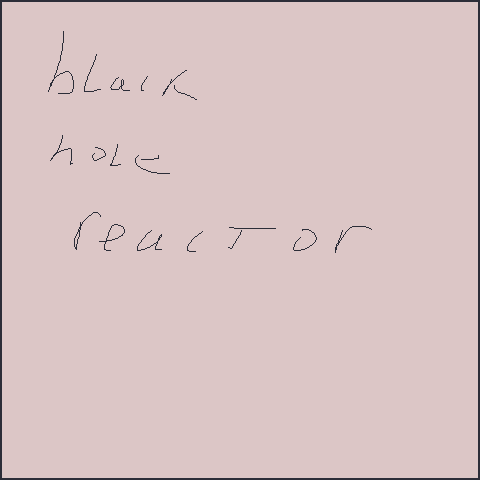 black
hole
reactor